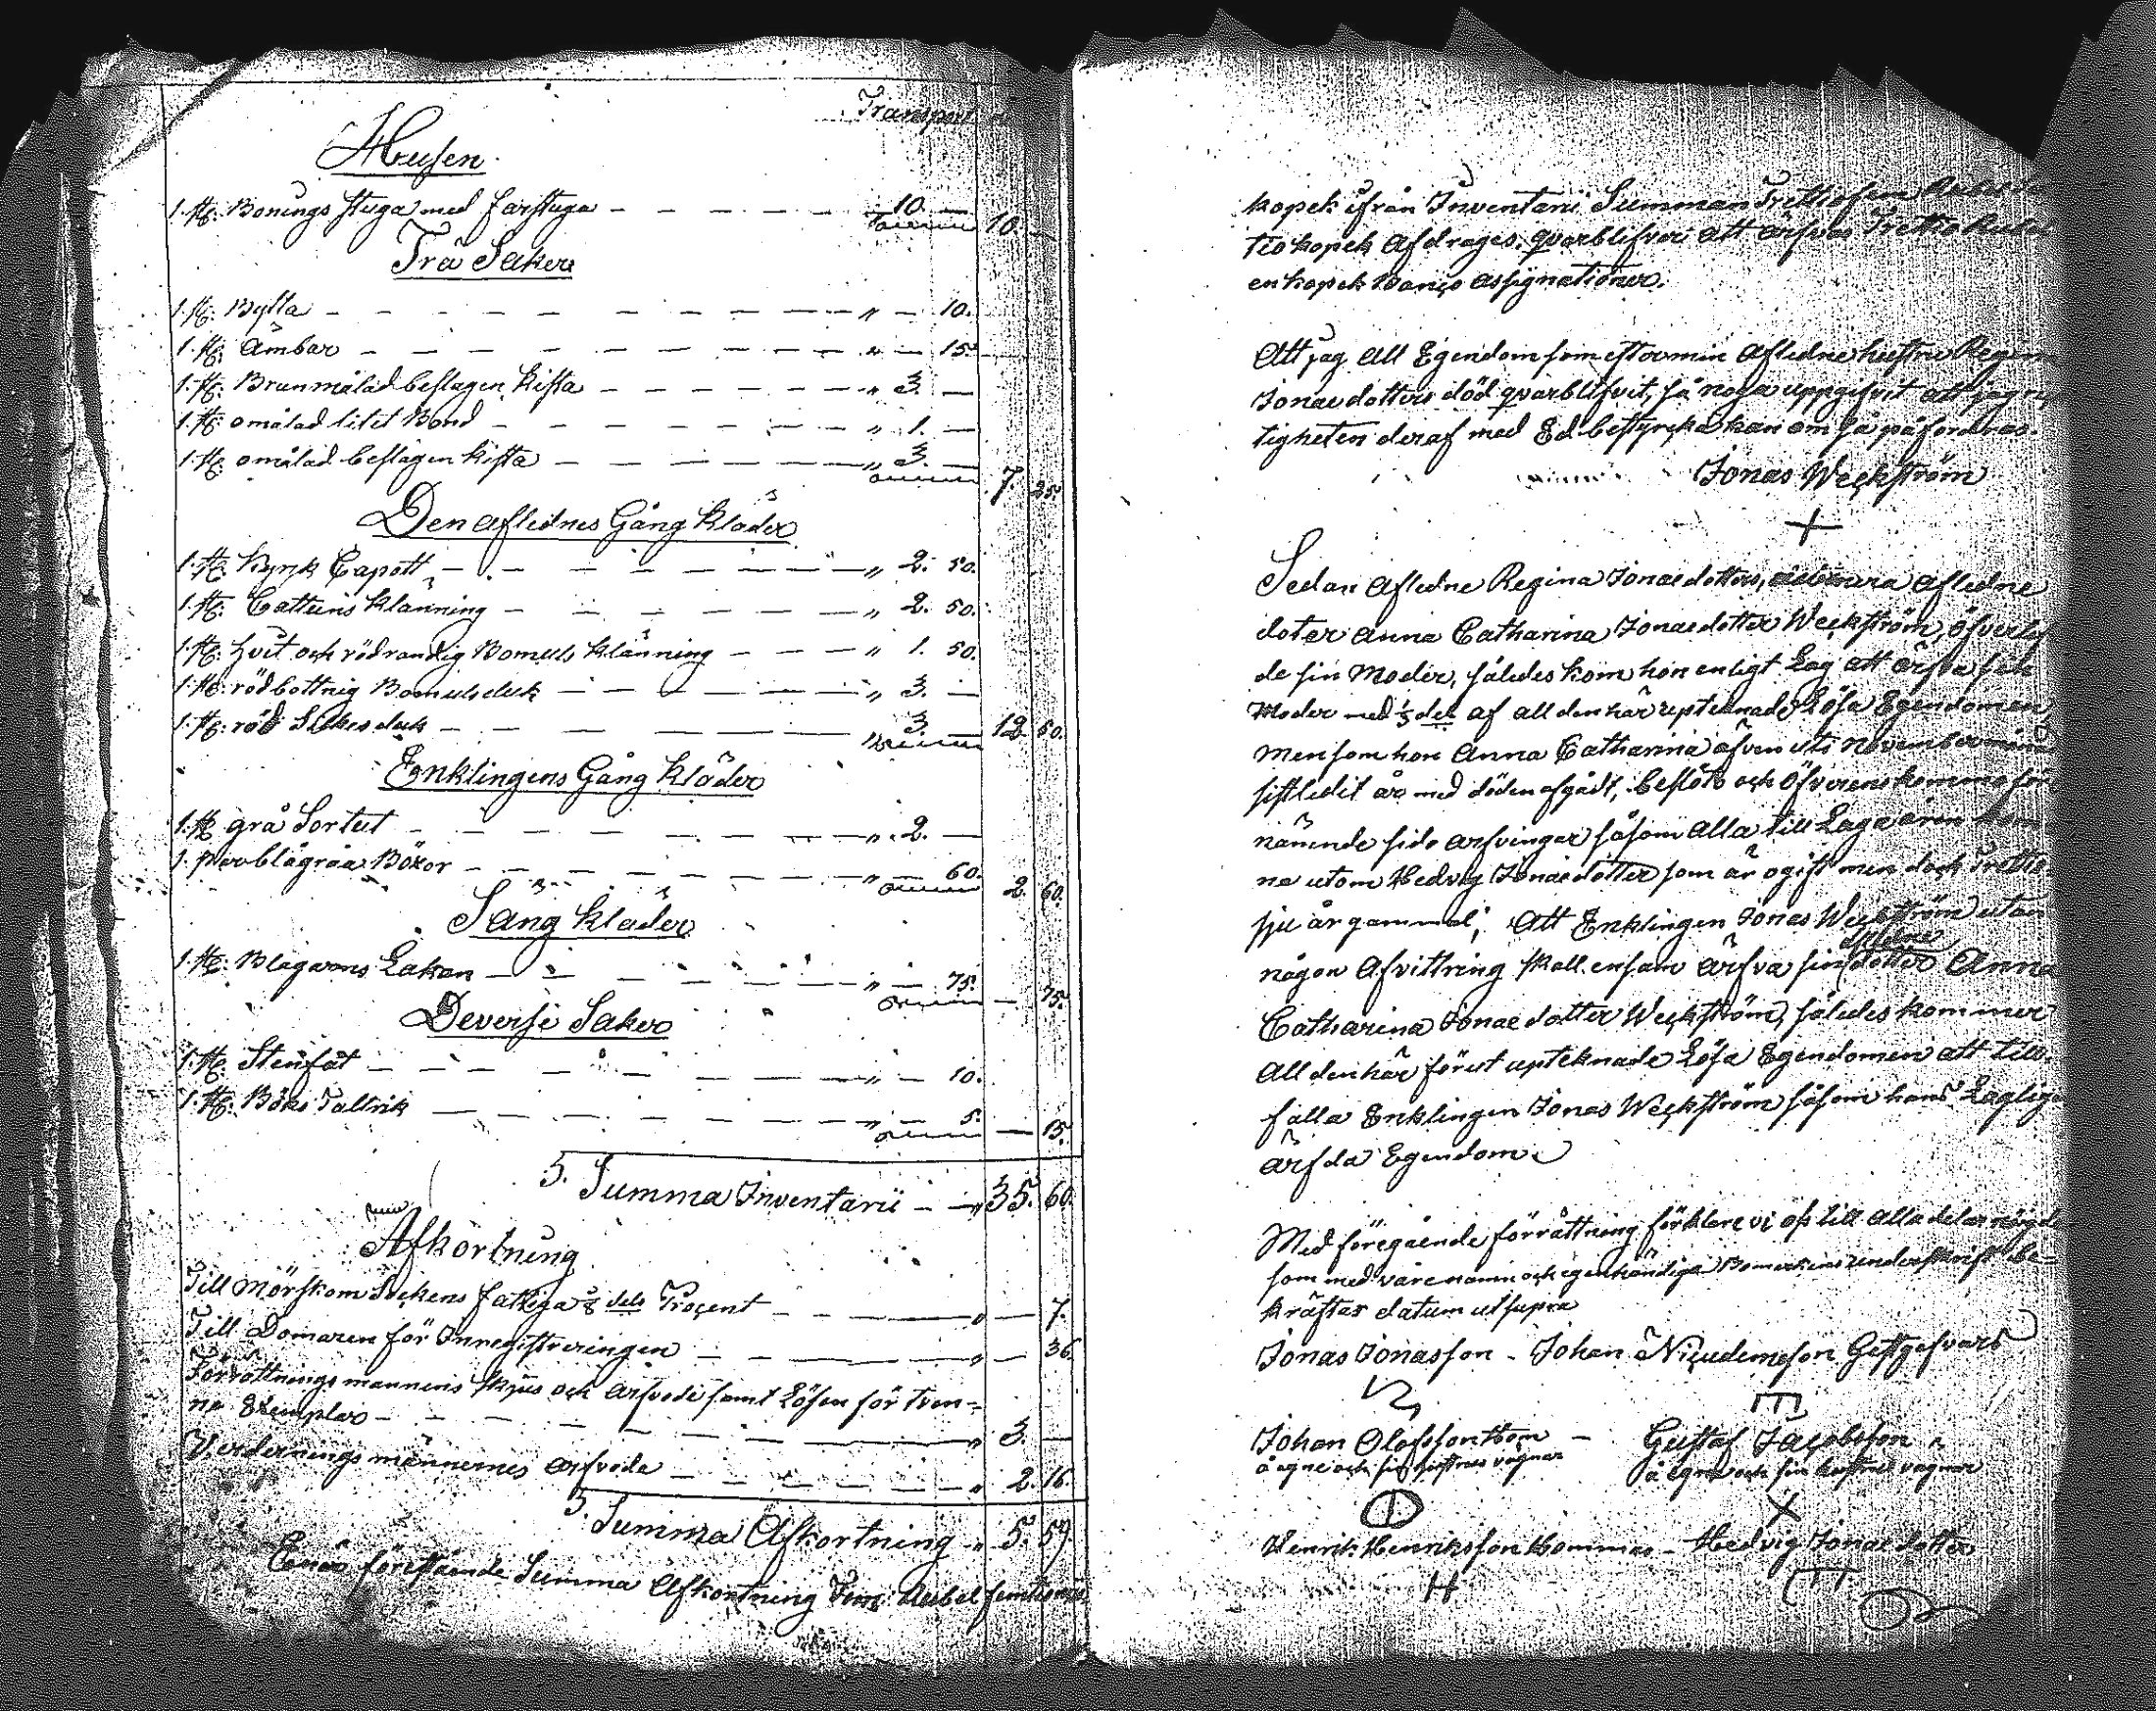 Transport
Husen
1. st: Bonings stuga med farstuga — 10. —
10. —
Trä Saker
1. st: Bytta — " — 10.
1. st: Ämbar — " — 15.
1. st: Brunmålad beslagen Kista — " 3. —
1. st: omålad litet Bord — " 1. —
1. st: omålad beslagen Kista — " 3. —
7. 25.
Den aflednes Gång kläder
1. st: Kyrk Capott — " 2. 50.
1. st: Cattuns klänning — " 2. 50.
1. st: hvit och rödrandig Bomuls klänning — " 1. 50.
1. st: rödbottnig Bomulsduk — " 3. —
1. st: röd Silkesduk — " 3. — 12. 50.
Enklingens Gång kläder
1. st: grå Sortut — " 2. —
1. par blågråa Böxor — " — 60.
2. 60.
Säng kläder
1. st: Blågarns Lakan — " — 75.
— 75.
Deverse Saker
1. st: Stenfat — " — 10.
1. st: Böks Tallrik — " — 5.
— 15.
S. Summa Inventarii — " 35. 60.
Afkortning
Till Mörskom Sockens fattiga 2/8 dels Procent — " — 7.
Till Domaren för Inregistreringen — " — 36.
Förrättnings mannens skjus och arfvode samt Lösen för tven-
ne Exemplar — " 3. —
Värderings männernes arfvode — " 2. 16.
S. Summa Afkortning " 5. 59.
Enär förestående Summa Afkortning Fem Rubel femtionio
kopek ifrån Inventarii Summan Trettiofem
tio kopek afdrages, qvarblifver att ärfvas Trettio Rubel
en kopek Banco assignationer.
Att jag all Egendom som efter min Afledne hustru Regina
Jonaedotters död qvarblifvit, så noga uppgifvit att jag rig
tigheten deraf med Ed bestyrcka kan om så påfordras.
Jonas Weckström
Sedan Afledne Regina Jonaedotters, afledne
doter Anna Catharina Jonaedotter Weckström, öfverlef
de sin Moder, således kom hon enligt Lag att ärfva sin
Moder med 1/3 del af all den här upteknade Lösa Egendomen
men som hon Anna Catharina äfven uti November månad
sistledit år med döden afgådt, beslöto och öfverenskommo för
nämnde sido arfvingar såsom alla till Laga åren
ne utom Hedvig Jonaedotter som är ogift men dock Trettio
sju år gammal; Att Enklingen Jonas Weckström utan
någon Afvittring skall ensam ärfva sin afledne dotter Anna
Catharina Jonaedotter Weckström, således kommer
all den här förut upteknade Lösa Egendomen att till-
falla Enklingen Jonas Weckström såsom hans Lagliga
ärfda Egendom.
Med föregående förrättning förklare vi oss till alla delar nögde
som med våre namn och egenhändiga Bomärkens underskrift be-
kräftas datum utsupra
Jonas Jonasson - Johan Nicudemeson Gestgifvars
Johan Olofsson Hom - Gustaf Jacobsson
å egne och sin hustrus vägnar å egne och sin hustrus vägnar
Henrik Henriksson Hommas - Hedvig Jonaedotter